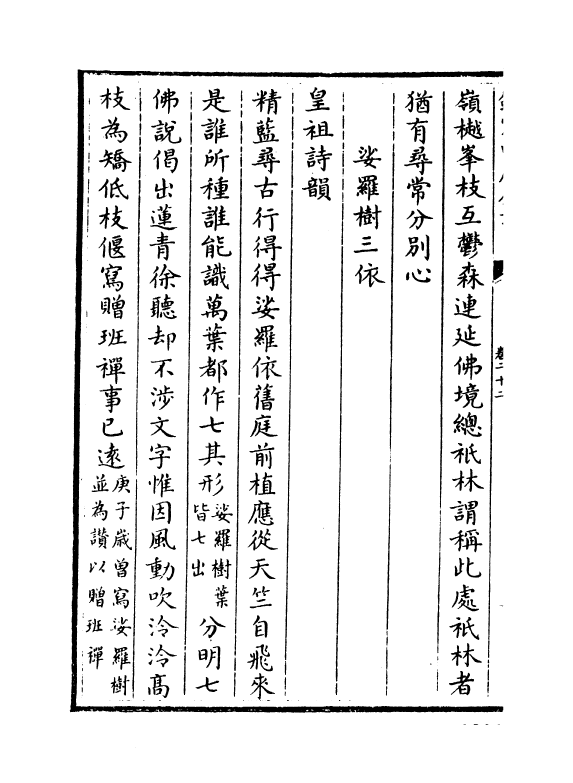 卷二十二
嶺樾峯枝互鬱森連延佛境總祇林謂稱此處祇林者
猶有尋常分別心
娑羅樹三依
皇祖詩韻
精藍尋古行得得娑羅依舊庭前植應從天竺自飛來
是誰所種誰能識萬葉都作七其形娑羅樹葉皆七出分明七
佛說偈出蓮青徐聽却不涉文字惟因風動吹泠泠髙
枝為矯低枝偃寫贈班禪事已逺庚子嵗曾寫娑羅樹並為讚以贈班禪